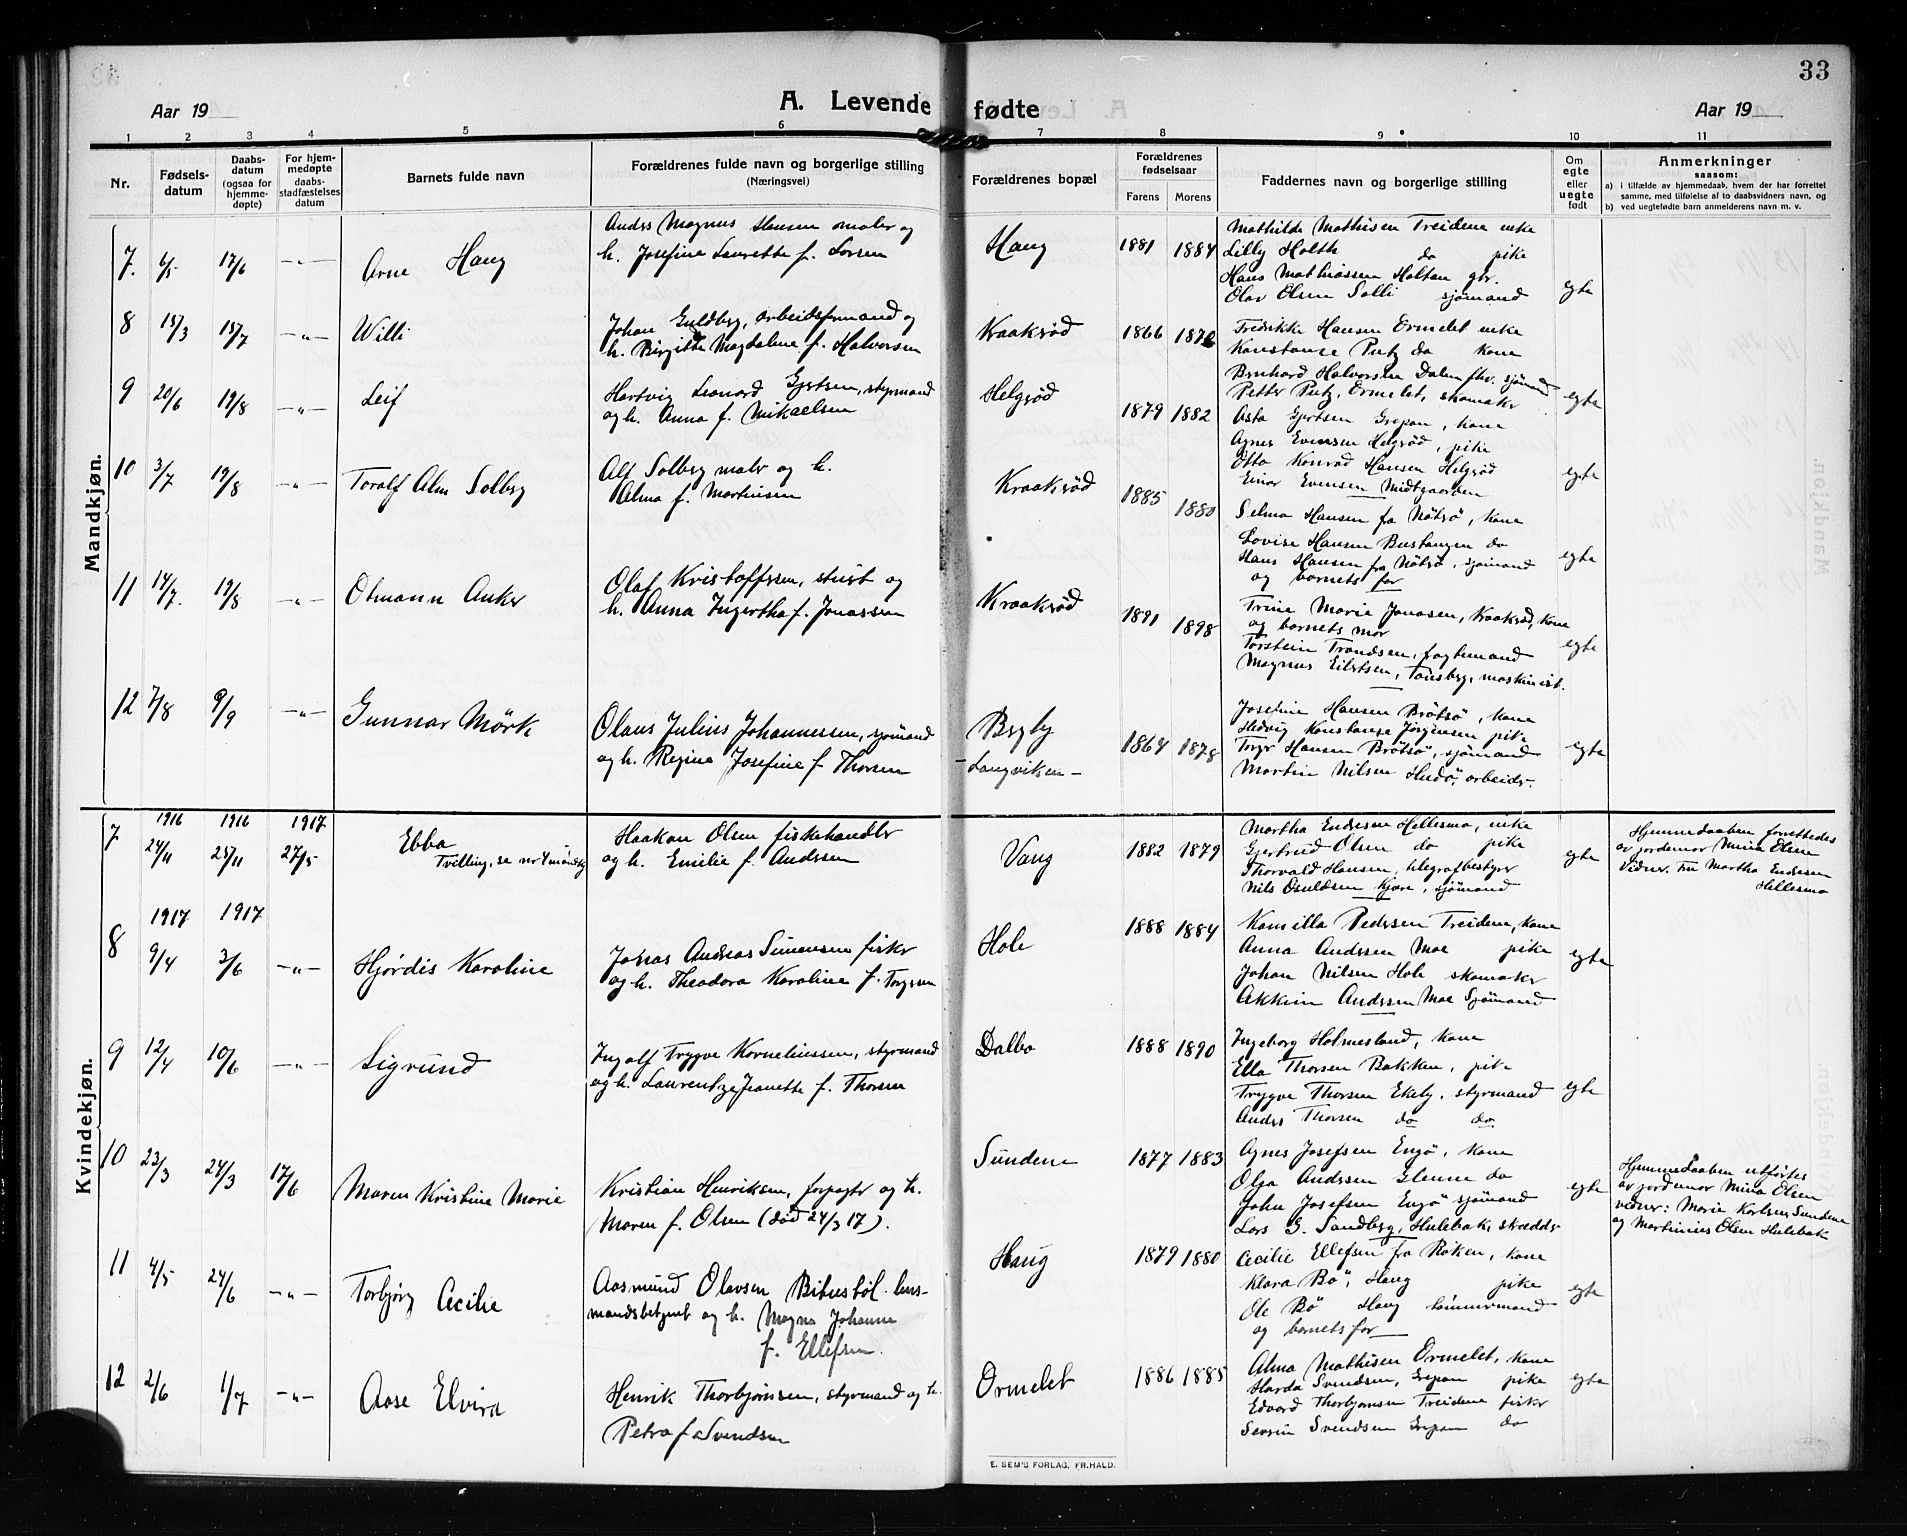 33
Aar 19
A. Levende fødte
Aar 19
1 2 3 4 5 6 7 8 9 10 11
Nr.
Fødsels-
datum
Daabs-
datum
(ogsaa for
hjemme-
døpte)
For hjem-
medøpte
daabs-
stadfæstelses
datum
Barnets fulde navn
Forældrenes fulde navn og borgerlige stilling
(Næringsvei)
Forældrenes bopæl
Forældrenes
fødselsaar
Farens Morens
Faddernes navn og borgerlige stilling
Om
egte
eller
uegte
født
Anmerkninger
saasom:
a) i tilfælde av hjemmedaab, hvem der har forrettet
samme, med tilføielse af to daabsvidners navn, og
b) ved uegtefødte barn anmelderens navn m. v.
Mandkjøn.
7. 6/5 17/6 -"- Arne Haug
Anders Magnus Hansen maler og
h. Josefine Laurette f. Larsen
Haug 1881 1884
Mathilde Mathisen Treidene enke
Lilly Holth do pike
Hans Mathiassen Holtan gbr.
Olav Olsen Solli sjømand
egte
8 15/3 15/7 -"- Willi
Johan Guldberg, arbeidsformand og
h. Birgitte Magdalene f. Halvorsen
Kraakrød 1866 1872
Fredrikke Hansen Ormelet enke
Konstanse Putz do kone
Bernhard Halvorsen Dalen fhv. sjømand
Petter Putz, Ormelet, skomaker
egte
9 20/6 19/8 -"- Leif
Hartvig Leonard Gjertsen, styrmand
og h. Anna f. Mikaelsen
Helgrød 1879 1882
Asta Gjertsen Grepan, kone
Agnes Evensen Helgrød, pike
Otto Konrad Hansen Helgrød
Einar Evensen Midtgaarden
egte
10 3/7 19/8 -"- Toralf Alm Solberg
Alf Solberg maler og h.
Alma f. Martinsen
Kraakrød 1885 1880
Selma Hansen fra Nötsö, kone
Lovise Hansen Bustangen do
Hans Hansen fra Nötsö, sjømand
og barnets far
egte
11 14/7. 19/8 -"- Otmann Anker
Olaf Kristoffersen, stuert og
h. Anna Ingertha f. Jonassen
Kraakrød 1891 1898
Trine Marie Jonasen, Kraakrød, kone
og barnets mor
Torstein Trondsen, fagtemand
Magnus Eilertsen, Tönsberg, maskinist.
egte
12 7/8 9/9 -"- Gunnar Mörk
Olaus Julius Johannessen, sjømand
og h. Regine Josefine f Thorsen
Bygby
Langviken-
1864 1878
Josefine Hansen Brötsö, kone
Hedvig Konstanse Jörgensen pike
Torger Hansen Brötsö, sjømand
Martin Nilsen Hudö, arbeids-.
egte
Kvindekjøn.
1916 1916 1917
7 24/11 25/11 27/5 Ebba
Tvilling, se nr 4 mandkj
Haakon Olsen fiskehandler
og h. Emilie f. Andersen
Vang 1882 1879
Martha Endresen Hellesmo, enke
Gjertrud Olsen do pike
Thorvald Hansen, telegrafbestyrer
Nils Osuldsen Kjære, sjømand
egte
Hjemmedaaben forrettedes
av jordemor Mina Olsen
Vidner. Fru Martha Endresen
Hellesmo
1917 1917
8 9/4 3/6 -"- Hjørdis Karoline
Jonas Andreas Simensen fisker
og h. Theodora Karoline f. Torgersen
Hole 1888 1884
Kamilla Pedersen Treidene, kone
Anna Andersen Moe pike
Johan Nilsen Hole skomaker
Akkim Andersen Moe Sjömand
egte
9 12/4 10/6 -"- Sigrund
Ingolf Trygve Korneliussen, styrmand
og h. Laurentze Jeanette f. Thorsen
Dalbo 1888 1890
Ingeborg Holmesland, kone
Ella Thorsen Bakken, pike
Trygve Thorsen Ekely, styrmand
Anders Thorsen do do
egte
10 23/3 24/3 17/6 Maren Kristine Marie
Kristian Henriksen, forpagter og h.
Maren f. Olsen (död 24/3 17).
Sundene 1877 1883
Agnes Josefsen Engö, kone
Olga Andersen Glenne do
John Josefsen Engö sjömand
Lars G. Sandberg, Hulebak, skrædder
egte
Hjemmedaaben utförtes
av jordemor Mina Olsen
vidner: Marie Karlsen, Sundene
og Martinius Olsen Hulebak
11 4/5 24/6 -"- Torbjörg Cecilie
Aasmund Olavsen Bitustöl. lens-
mandsbetjent og h. Magna Johanne
f. Ellefsen.
Haug 1879 1880
Cecilie Ellefsen fra Röken, kone
Klara Bö, Haug pike
Ole Bö Haug tømmermand
og barnets far
egte
12 2/6 1/7 -"- Aase Elvira
Henrik Thorbjörnssen, styrmand og h.
Petra f. Svendsen
Ormelet 1886 1885
Alma Mathisen Ormelet, kone
Harda Svendsen, Grepan pike
Edvard Thorbjörnsen Treidene fisker
Severin Svendsen Grepan do
egte
E. SEM'S FORLAG, FR.HALD.